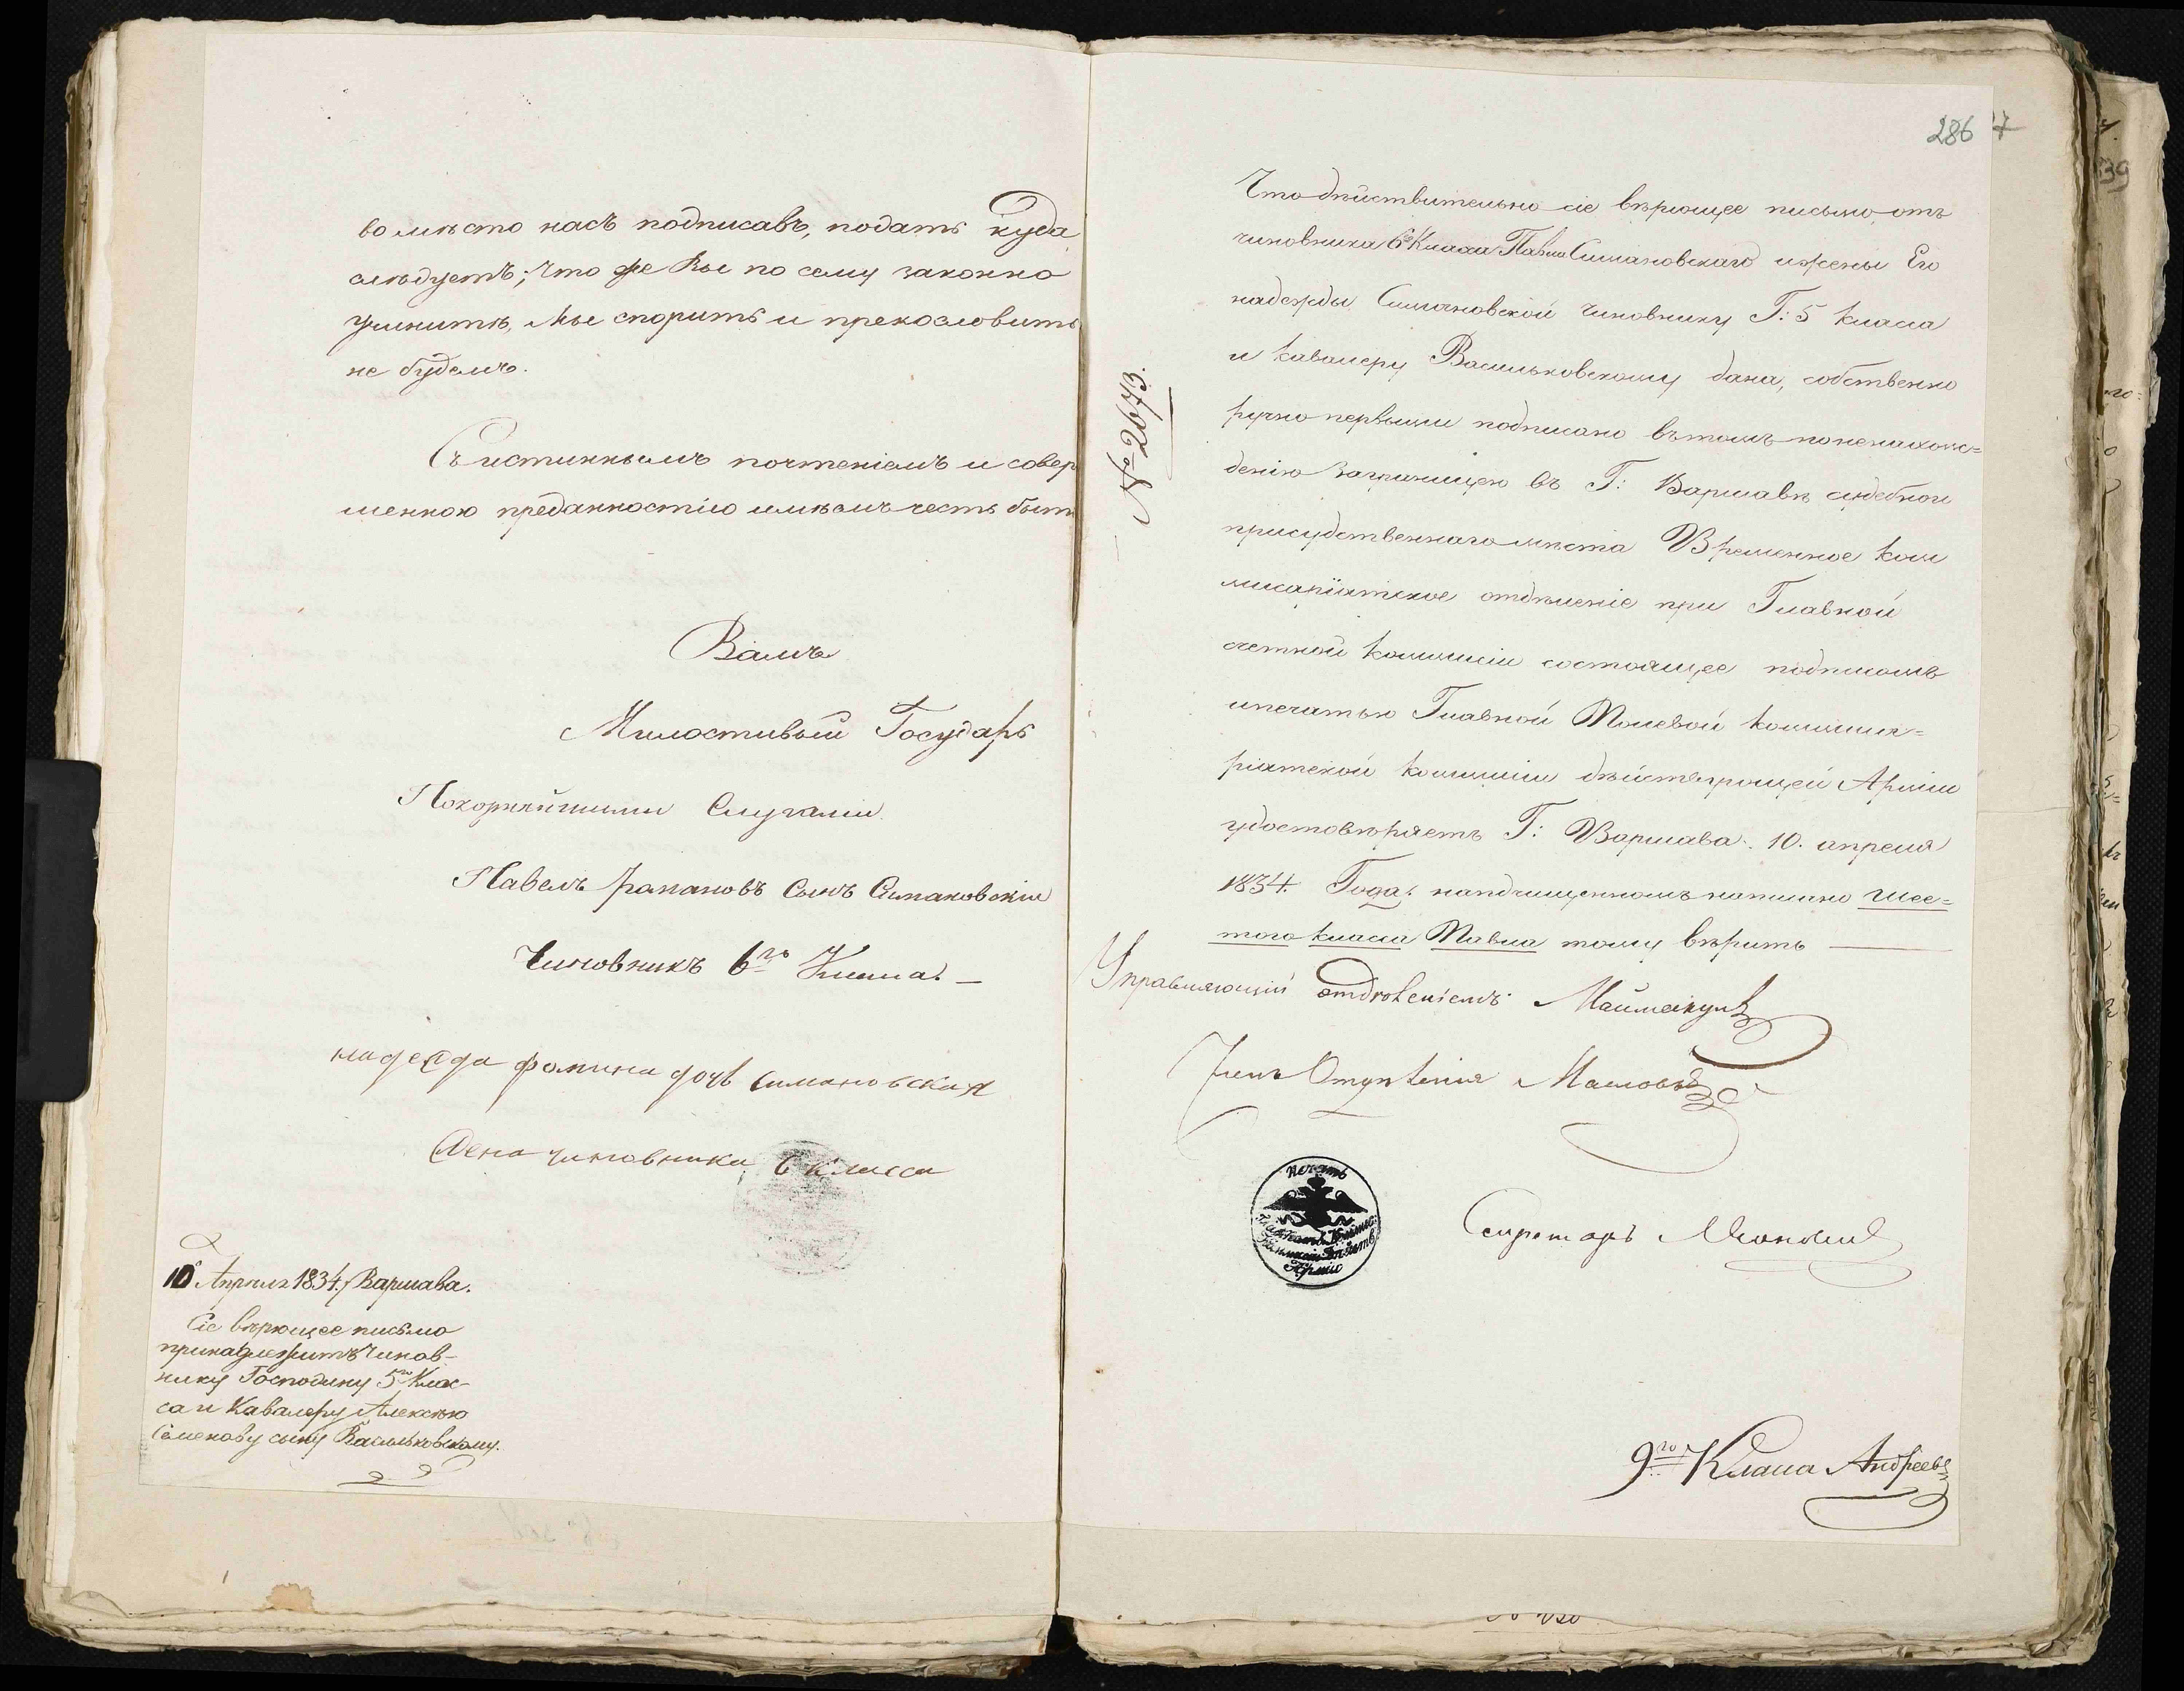 во мѣсто насъ подписавъ, подать куда
слѣдуетъ; что же Вы по сему законно
учините, мы спорить и прекословить
не будемъ.
Съ истиннымъ почтеніемъ и совер
шенною преданностію имѣемъ честь быть
Вамъ
Милостивый Государь
Покорнѣйшими Слугами
Павелъ Романовъ Сынъ Симановскій
Чиновникъ 6го Класса
надежда фомина дочь симановская
жена чиновника 6 класса
10 Апрѣля 1834. Варшава.
Сіе вѣрющее письмо
принадлежитъ Чинов-
нику Господину 5го Клас-
са и Кавалеру Алексѣю
Семенову сыну Васильковскому.
286
№ 2673.
Что дѣйствительно сіе вѣрющее письмо отъ
чиновника 6го Класса Павла Симановскаго и жены Его
надежды Симановской чиновнику Г: 5 класса
и кавалеру Васильковскому дана, собственно
ручно первыми подписано въ томъ по ненахож=
денію заграницею въ Г: Варшавѣ судебнои
присудственнаго мѣста Временное ком
мисаріятское отдѣленіе при Главной
счетной коммисіи состоящее подписомъ
и печатью Главной Полевой коммиса=
ріатской коммисіи дѣйствующей Арміи
удостовѣряетъ Г: Варшава. 10. апреля
1834. Года. наподчищенномъ написано шес=
того класса Павла тому вѣрить
Управляющій отдѣленіемъ
Членъ Отдѣленія Масловъ
Секретарь
Печать
Арміи
9го Класса Андреевъ